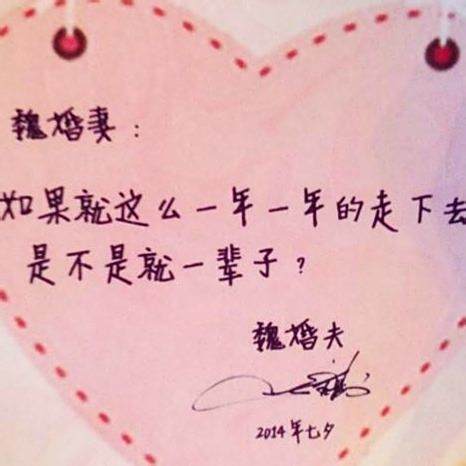 魏婚妻：
如果就这么一年一年的走下去
是不是就一辈子？
魏婚夫
2014年七夕